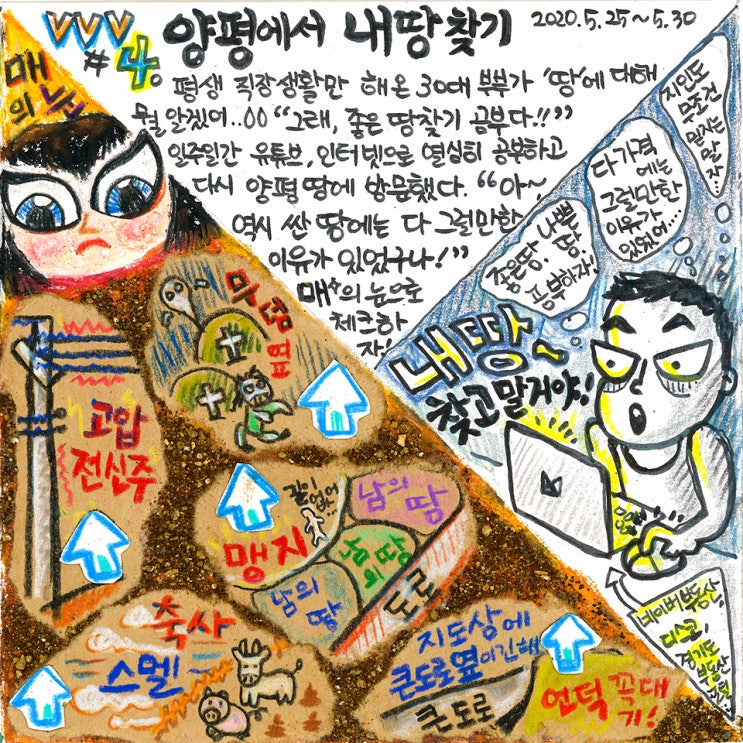 VVV
#4.
양평에서 내땅찾기
2020.5.25~5.30
평생 직장생활만 해온 30대 부부가 '땅'에 대해
뭘 알겠어..00 "그래, 좋은 땅찾기 공부다!!"
일주일간 유튜브, 인터넷으로 열심히 공부하고
다시 양평 땅에 방문했다. "아~
역시 싼 땅에는 다 그럴만한
이유가 있었구나!"
매의 눈으로
체크하
자!
매
의 눈
지인도
무조건
믿지는
말자...
다 가격
에는
그럴만한
이유가
있었어....
좋은땅, 나쁜
땅,
공부하자!
내땅~
찾고 말거야!
네이버부동산,
디스코,
경기도
부동산
포털
묘지
옆
고압
전신주
길이
없어
맹지
남의
땅
남의
땅
남의
땅
도로
축사
스멜
지도상에
큰도로옆이긴해
큰 도로
언덕 꼭대
기!